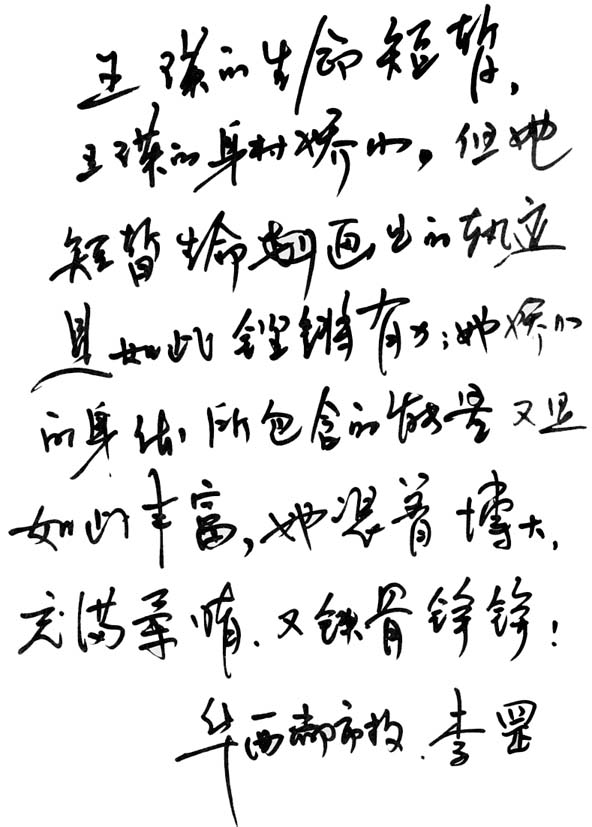 王瑛的生命短暂,
王瑛的身材娇小,但她
短暂生命刻画出的轨迹
是如此铿锵有力;她娇小
的身体所包含的能量又是
如此丰富,她思着博大,
充满柔情.又铁骨铮铮!
华西都市报.李罡